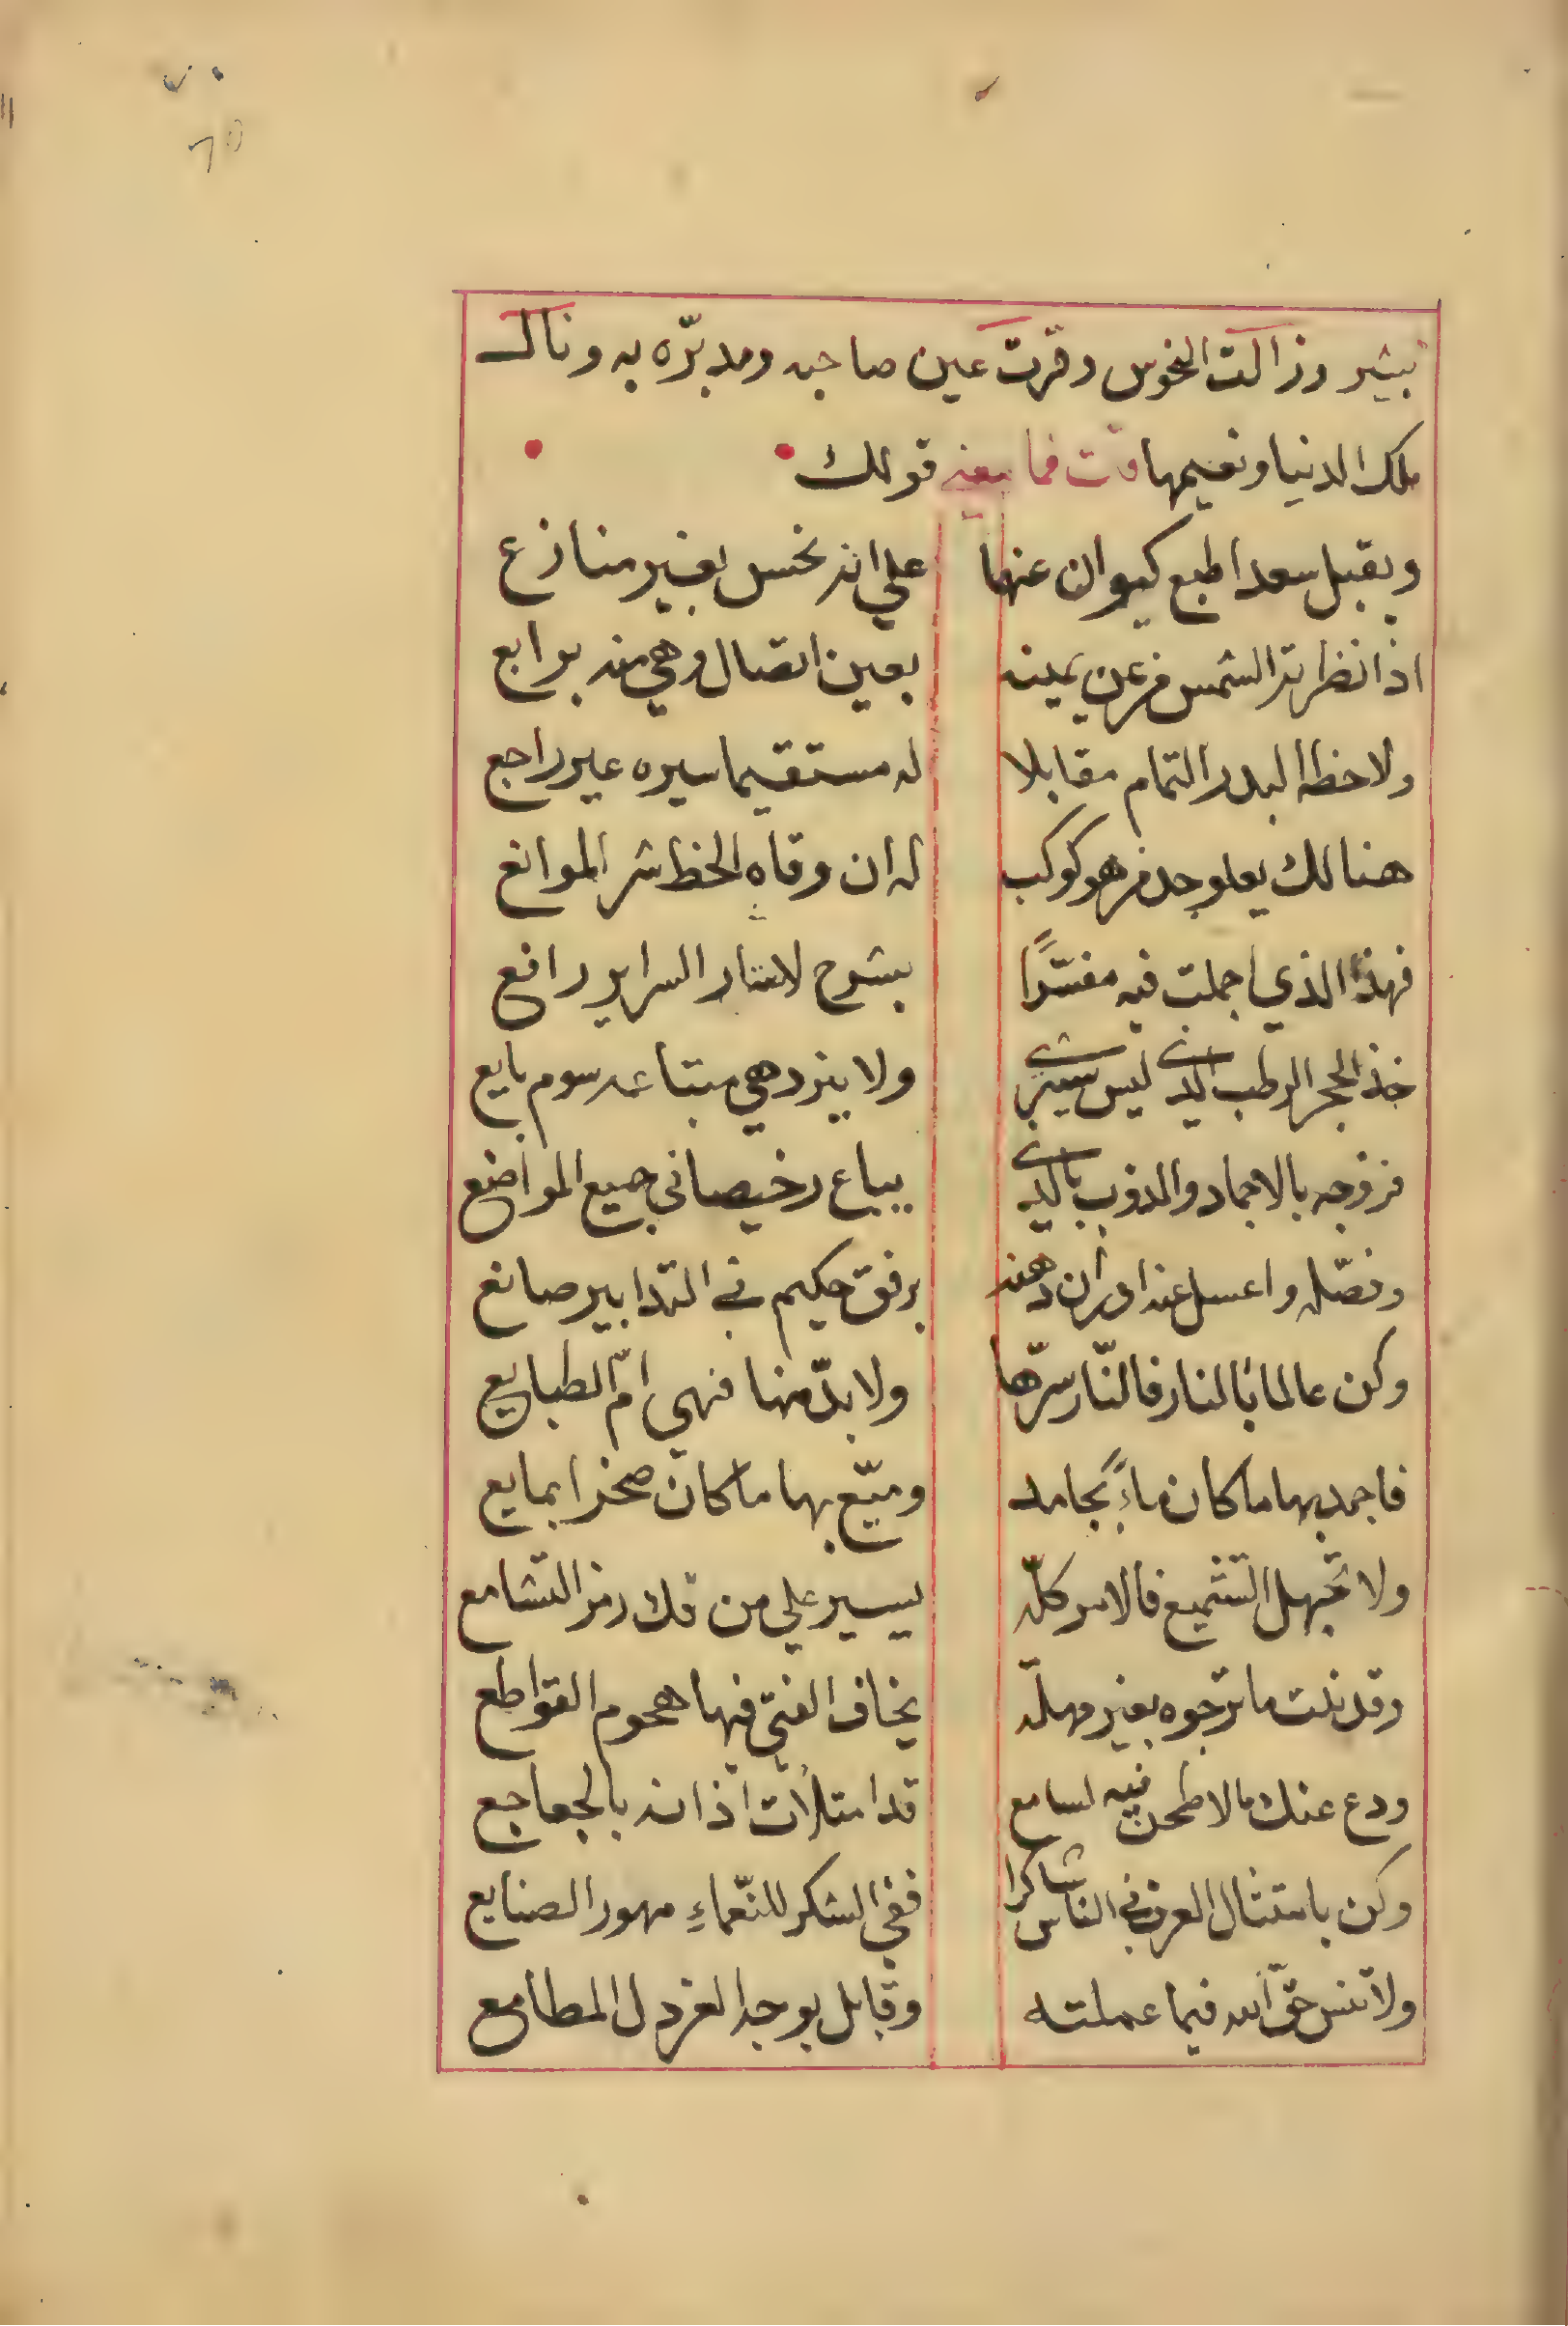 ٧٠
٦٥
بشر وزالت النحوس وقرّت عين صاحبه ومدبّره به ونال
ملك الدنيا ونعيمها قلت فما معني قولك
ويقبل سعدا طبع كيوان عنها علي انه نحس بغير منازع
اذا نظرته الشمس من عن يمينه بعين اتصال وهي منه برابع
ولاحظه البدر التمام مقابلا له مستقيما سيره غير راجع
هنالك يعلو جد من هو كوكب له ان وقاه الحظ شر الموانع
فهذا الذي اجملت فيه مفسّرًا بشرح لاستار السراير رافع
خذ الحجر الرطب الذي ليس يشتري ولا يزدهي مبتاعه سوم بايع
فزوجه بالاجماد والذوب بالذي يباع رخيصا في جميع المواضع
وفصّله واعسل عنه اوران دهنه برفق حكيم في التدابير صانع
وكن عالما بالنار فالنّار سرّها ولا بدّ منها فهي امّ الطبايع
فاجمد بها ما كان ماءً بجامد وميّع بها ما كان صخرا بمايع
ولا تجهل التشميع فالامر كلّه يسير علي من فك رمز التشامع
وقد نلت ما ترجوه بغير مهلّه يخاف الفتي فيها هحوم القواطع
ودع عنك ما لا طحن فيه لسامع قد امتلأت اذانه بالجعاجع
وكن بامتثال العرف في الناس شاكرا ففي الشكر للنّعماءِ مهور الصنايع
ولا تنس حقّ الله فيما عملته وقابل بوجه العز ذل المطامع